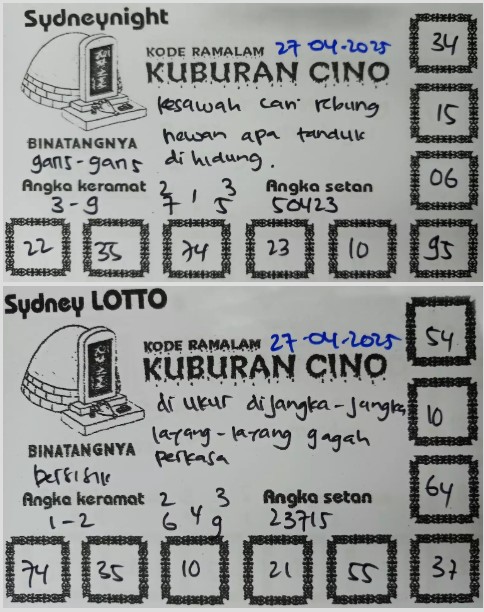 Sydneynight
KODE RAMALAM 27-04-2025
KUBURAN CINO
kesawah cari rebung
hewan apa tanduk
di hidung.
BINATANGNYA
gans-gans
Angka keramat
3-9
2 3
7 1 5
Angka setan
50423
34
15
06
22 35 74 23 10 95
Sydney LOTTO
KODE RAMALAM 27-04-2025
KUBURAN CINO
di ukur dijangka-jangka
layang-layang gagah
perkasa
BINATANGNYA
bersisik
Angka keramat
1-2
2 3
6 4 9
Angka setan
23715
54
10
64
74 35 10 21 55 37